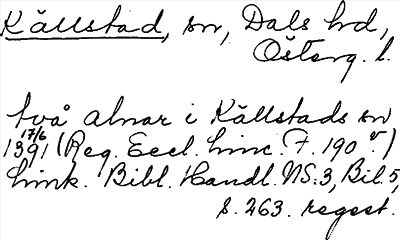 Källstad, sn, Dals hd,
Österg. l.
två alnar i Källstads sn
17/6
1391 (Reg. Eccl. Linc. F. 190 v.)
Link. Bibl. Handl. NS:3, Bil. 5,
s. 263. regest.